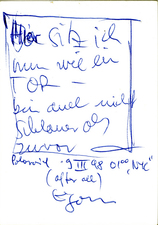 Hier sitz ich
nun wie ein
TOR —
bin auch nicht
schlauer als
zuvor —
9 III 98 01:00 "NYC"
(after all)
Egon